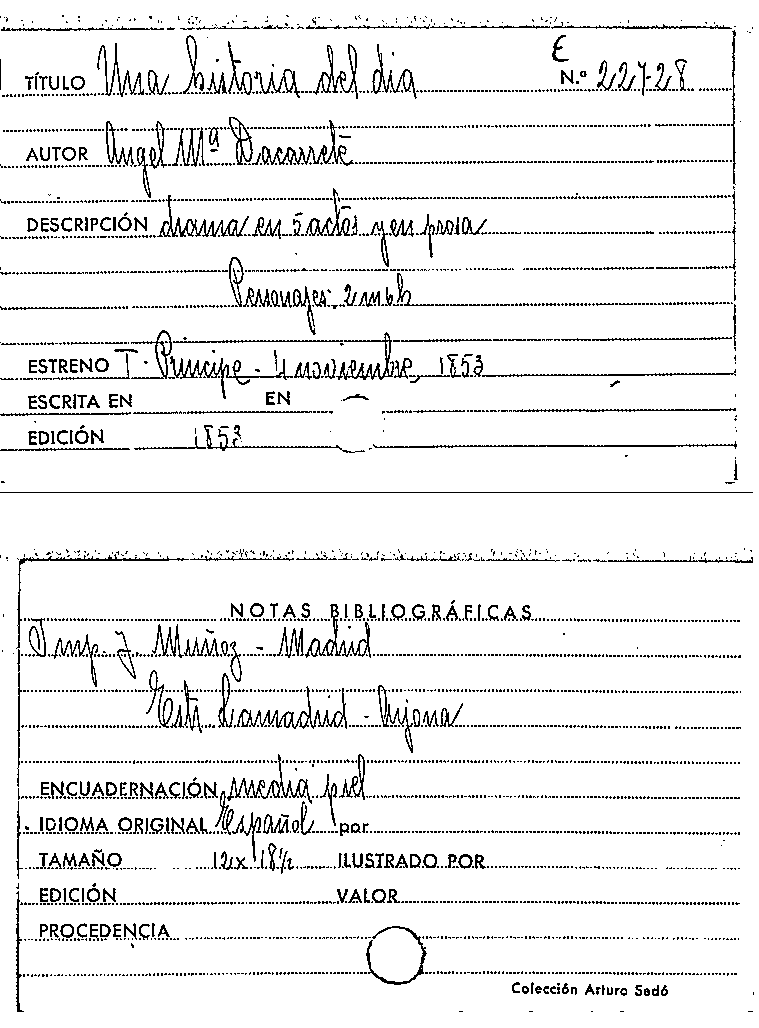 E
TÍTULO Una historia del dia N.º 227-28
AUTOR Angel Mª Dacarrete
DESCRIPCIÓN drama en 5 actos y en prosa
Personajes: 2 m 6 h
ESTRENO T. Principe - 4 noviembre, 1853
ESCRITA EN EN
EDICIÓN 1853
NOTAS BIBLIOGRÁFICAS
Imp. J. Muñoz - Madrid
Estr. Lamadrid - Arjona
ENCUADERNACIÓN media piel
IDIOMA ORIGINAL Español por
TAMAÑO 12 x 18½ ILUSTRADO POR
EDICIÓN VALOR
PROCEDENCIA
Colección Arturo Sedó